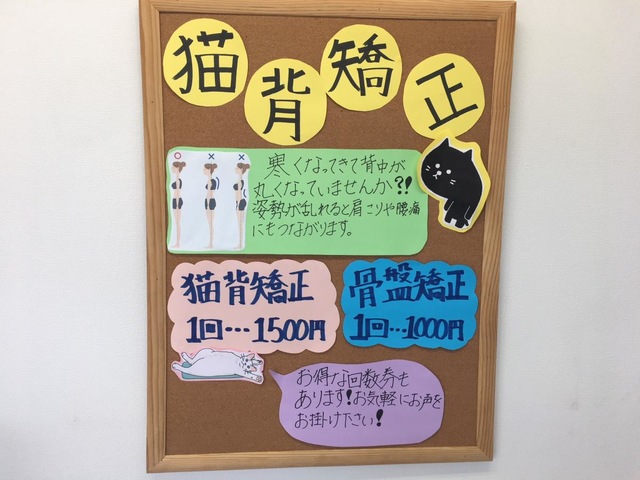 猫背矯正
○ × ×
寒くなってきて背中が
丸くなっていませんか?!
姿勢が乱れると肩こりや腰痛
にもつながります。
猫背矯正
1回…1500円
骨盤矯正
1回…1000円
お得な回数券も
あります!お気軽にお声を
お掛け下さい!